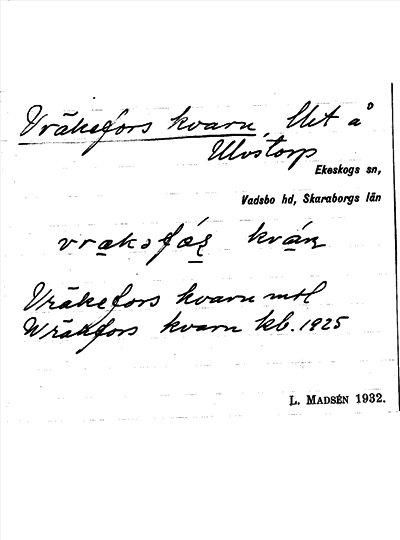 Vräkefors kvarn, Utet å
Ulvstorp
Ekeskogs sn,
Vadsbo hd, Skaraborgs län
kván
Vräkefors kvarn mtl
Wräkfors kvarn kb. 1925
L. MADSÉN 1932.